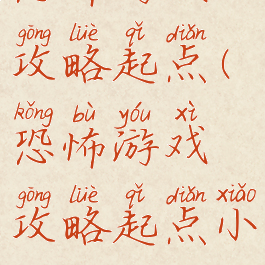 gōng lüè qǐ diǎn
攻略起点(
kǒng bù yóu xì
恐怖游戏
gōng lüè qǐ diǎn xiǎo
攻略起点小